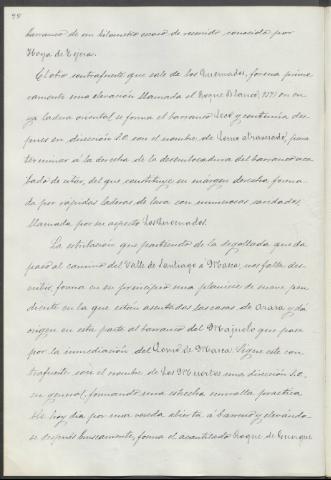 98
barranco de un kilometro escaso de recorrido, conocido por
Hoya de Tejera.
El otro contrafuerte que sale de los Quemados, forma prime
ramente una elevación llamada el Roque Blanco, en cu
ya ladera oriental se forma el barranco Seco y continúa des
pues en dirección S.O. con el nombre de Lomo atravesado, para
terminar á la derecha de la desembocadura del barranco aca
bado de citar, del que constituye su margen derecha forma
da por rápidas laderas de lava con numerosas
llamada por su aspecto Los Quemados.
La estribación que partiendo de la segollada que da
paso al camino del Valle de Santiago á Masca, nos falta des
cribir, forma en su principio una planicie de suave pen
diente en la que están asentadas las casas de Araza y dá
origen en esta parte al barranco del Majuelo que pasa
por la inmediación del Lomo de Masca. Sigue este con
trafuerte con el nombre de Los Muertos una dirección S.O.
en general, formando una estrecha muralla practica
ble hoy dia por una vereda abierta á barreno y elevando-
se después bruscamente, forma el acantilado Roque de Guergue